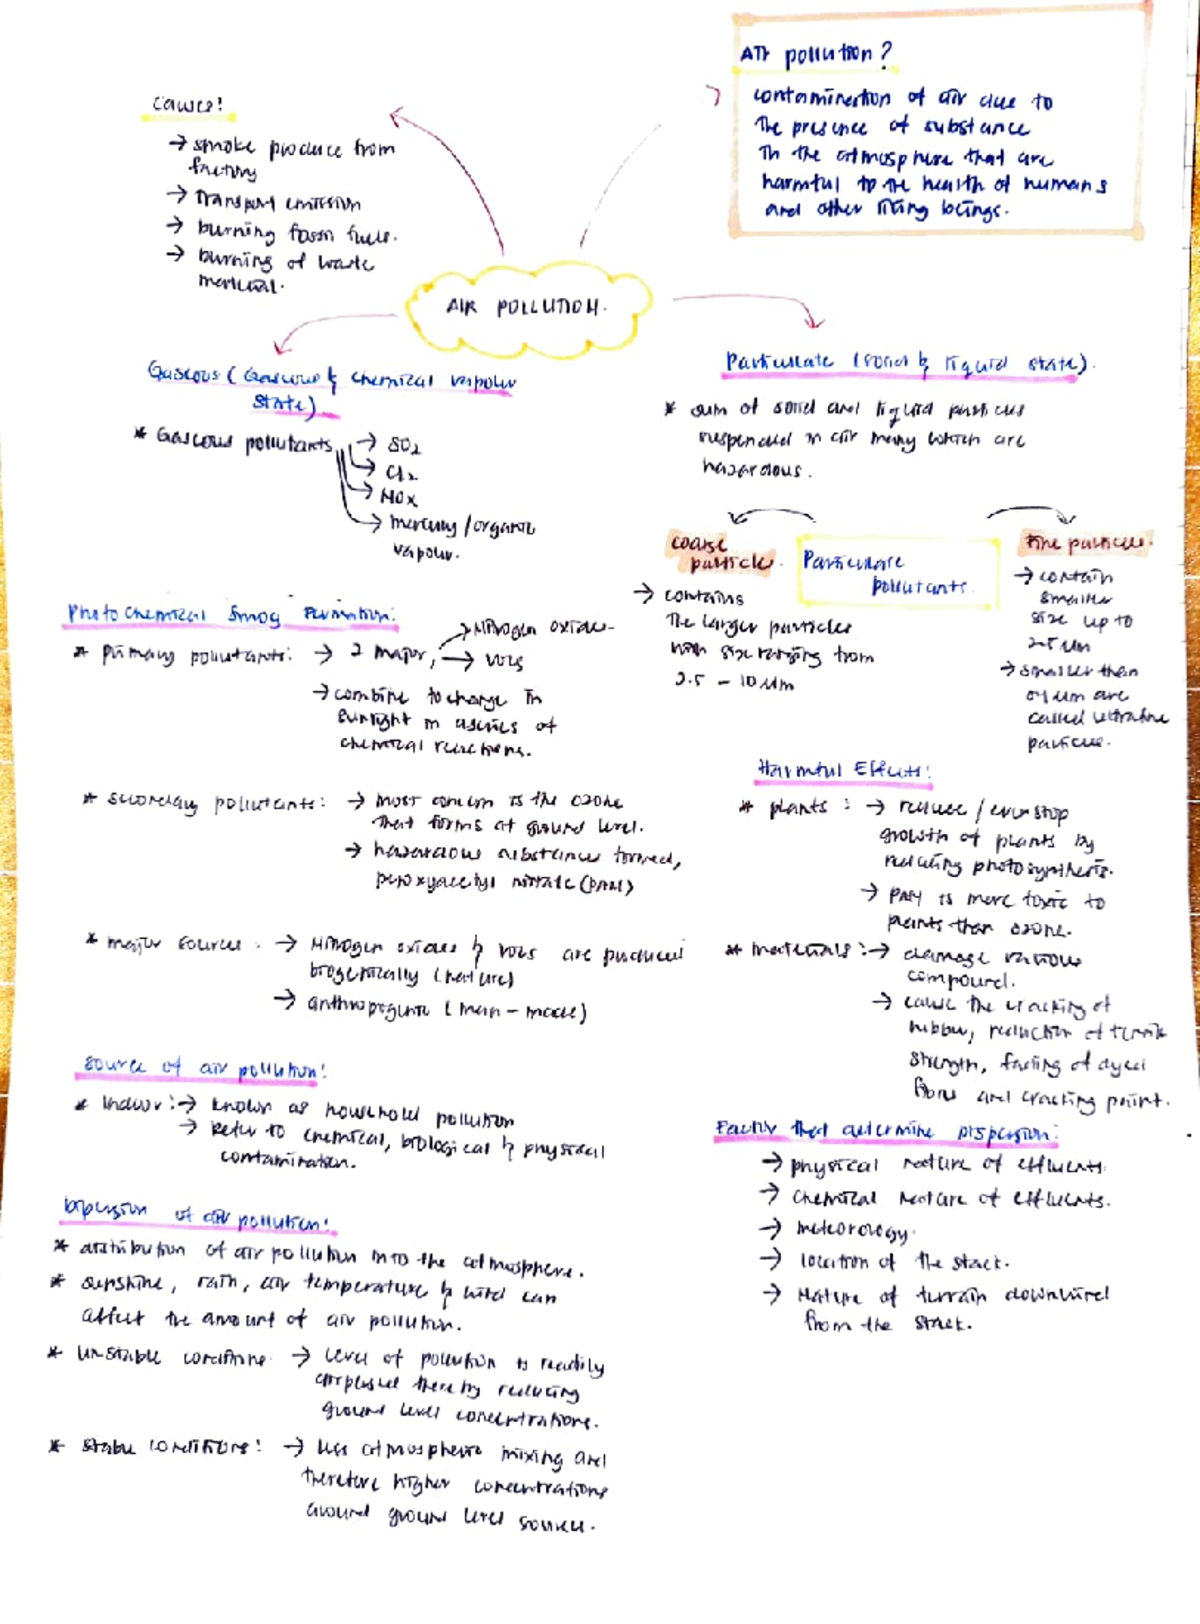 Air pollution?
contamination of air due to
the presence of substance
in the atmosphere that are
harmful to the health of humans
and other living beings.
causes:
→ smoke produce from
factory
→ Transport emission
→ burning fossil fuels.
→ burning of waste
material.
AIR POLLUTION.
Gaseous (Gaseous & chemical vapour
state).
* Gaseous pollutants
→ SO2
→ Cl2
→ NOx
→ mercury/organic
vapour.
Particulate (solid & liquid state).
* sum of solid and liquid particles
suspended in air many which are
hazardous.
Particulate
pollutants.
coarse
particle.
→ contains
the larger particles
with size ranging from
2.5 - 10 μm
Fine particle.
→ contain
smaller
size up to
2.5 μm
→ smaller than
0.1 μm are
called ultrafine
particle.
Photochemical Smog Formation:
* primary pollutants: → 2 major,
→ Nitrogen oxides
→ VOCs
→ combine to change in
sunlight in a series of
chemical reactions.
* secondary pollutants: → most concern is the ozone
that forms at ground level.
→ hazardous substance formed,
peroxyacetyl nitrate (PAN)
* major sources: → Nitrogen oxides & VOCs are produced
biogenically (nature)
→ anthropogenic (man-made)
Source of air pollution:
* Indoor: → known as household pollution
→ refer to chemical, biological & physical
contamination.
Dispersion of air pollution:
* distribution of air pollution into the atmosphere.
* sunshine, rain, air temperature & wind can
affect the amount of air pollution.
* Unstable conditions → level of pollution is readily
dispersed thereby reducing
ground level concentrations.
* stable conditions: → less atmospheric mixing and
therefore higher concentrations
around ground level source.
Harmful Effects:
* plants: → reduce / even stop
growth of plants by
reducing photosynthesis.
→ PAN is more toxic to
plants than ozone.
* materials: → damage various
compound.
→ cause the cracking of
rubber, reduction of tensile
strength, fading of dyed
fibres and cracking paint.
Factor that determine dispersion:
→ physical nature of effluents.
→ chemical nature of effluents.
→ meteorology.
→ location of the stack.
→ Nature of terrain downwind
from the stack.